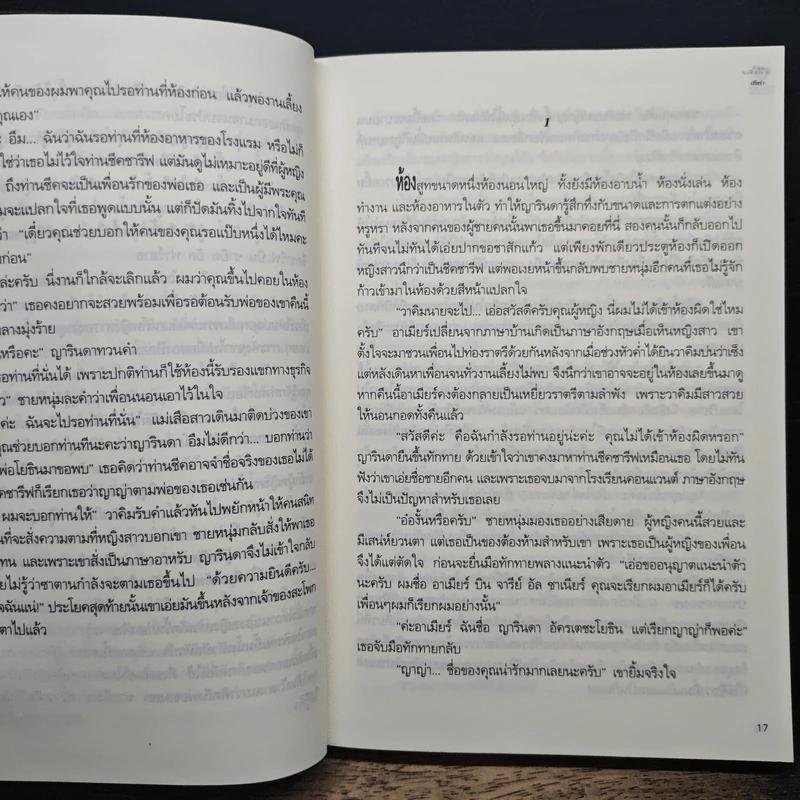 ให้คนของผมพาคุณไปรอท่านที่ห้องก่อน แล้วพองานเลี้ยง
คุณเอง”
อืม... ฉันว่าฉันรอท่านที่ห้องอาหารของโรงแรม หรือไม่ก็
ใช่ว่าเธอไม่ไว้ใจท่านชีคชารีฟ แต่มันดูไม่เหมาะอยู่ดีที่ผู้หญิง
ถึงท่านชีคจะเป็นเพื่อนรักของพ่อเธอ และเป็นผู้มีพระคุณ
จะแปลกใจที่เธอพูดแบบนั้น แต่ก็ปัดมันทิ้งไปจากใจทันที
ว่า “เดี๋ยวคุณช่วยบอกให้คนของคุณรอแป๊บหนึ่งได้ไหมคะ
ก่อน”
ล่ะครับ นี่งานก็ใกล้จะเลิกแล้ว ผมว่าคุณขึ้นไปคอยในห้อง
ว่า” เธอคงอยากจะสวยพร้อมเพื่อรอต้อนรับพ่อของเขาคืนนี้
างมุ่งร้าย
หรือคะ” ญารินดาทวนคำ
รอท่านที่นั่นได้ เพราะปกติท่านก็ใช้ห้องนี้รับรองแขกทางธุรกิจ
ว” ชายหนุ่มละคำว่าเพื่อนนอนเอาไว้ในใจ
ค่ะ ฉันจะไปรอท่านที่นั่น” แม่เสือสาวเดินมาติดบ่วงของเขา
คุณช่วยบอกท่านทีนะคะว่าญารินดา อืมไม่ดีกว่า... บอกท่านว่า
พ่อโยธินมาขอพบ” เธอคิดว่าท่านชีคอาจจำชื่อจริงของเธอไม่ได้
ชารีฟก็เรียกเธอว่าญาญ่าตามพ่อของเธอเช่นกัน
ผมจะบอกท่านให้” วาคิมรับคำแล้วหันไปพยักหน้าให้คนสนิท
นที่จะสั่งความตามที่หญิงสาวบอกเขา ชายหนุ่มกลับสั่งให้พาเธอ
ทน และเพราะเขาสั่งเป็นภาษาอาหรับ ญารินดาจึงไม่เข้าใจกลับ
ยไม่รู้ว่าซาตานกำลังจะตามเธอขึ้นไป “ด้วยความยินดีครับ...
จฉันแน่!” ประโยคสุดท้ายนั้นเขาเอ่ยมันขึ้นหลังจากเจ้าของสะโพก
ตาไปแล้ว
1
ห้องสูทขนาดหนึ่งห้องนอนใหญ่ ทั้งยังมีห้องอาบน้ำ ห้องนั่งเล่น ห้อง
ทำงาน และห้องอาหารในตัว ทำให้ญารินดารู้สึกทึ่งกับขนาดและการตกแต่งอย่าง
หรูหรา หลังจากคนของผู้ชายคนนั้นพาเธอขึ้นมาคอยที่นี่ สองคนนั้นก็กลับออกไป
ทันทีจนไม่ทันได้เอ่ยปากขอชาสักแก้ว แต่เพียงพักเดียวประตูห้องก็เปิดออก
หญิงสาวนึกว่าเป็นชีคชารีฟ แต่พอเงยหน้าขึ้นกลับพบชายหนุ่มอีกคนที่เธอไม่รู้จัก
ก้าวเข้ามาในห้องด้วยสีหน้าแปลกใจ
“วาคิมนายจะไป... เอ่อสวัสดีครับคุณผู้หญิง นี่ผมไม่ได้เข้าห้องผิดใช่ไหม
ครับ” อาเมียร์เปลี่ยนจากภาษาบ้านเกิดเป็นภาษาอังกฤษเมื่อเห็นหญิงสาว เขา
ตั้งใจจะมาชวนเพื่อนไปท่องราตรีด้วยกันหลังจากเมื่อช่วงหัวค่ำได้ยินวาคิมบ่นว่าเซ็ง
แต่หลังเดินหาเพื่อนจนทั่วงานเลี้ยงไม่พบ จึงนึกว่าเขาอาจจะอยู่ในห้องเลยขึ้นมาดู
หากคืนนี้อาเมียร์คงต้องกลายเป็นเหยี่ยวราตรีตามลำพัง เพราะวาคิมมีสาวสวย
ให้นอนกอดทั้งคืนแล้ว
“สวัสดีค่ะ คือฉันกำลังรอท่านอยู่น่ะค่ะ คุณไม่ได้เข้าห้องผิดหรอก”
ญารินดายืนขึ้นทักทาย ด้วยเข้าใจว่าเขาคงมาหาท่านชีคชารีฟเหมือนเธอ โดยไม่ทัน
ฟังว่าเขาเอ่ยชื่อชายอีกคน และเพราะเธอจบมาจากโรงเรียนคอนแวนต์ ภาษาอังกฤษ
จึงไม่เป็นปัญหาสำหรับเธอเลย
“อ๋องั้นหรือครับ” ชายหนุ่มมองเธออย่างเสียดาย ผู้หญิงคนนี้สวยและ
มีเสน่ห์ยวนตา แต่เธอเป็นของต้องห้ามสำหรับเขา เพราะเธอเป็นผู้หญิงของเพื่อน
จึงได้แต่ตัดใจ ก่อนจะยื่นมือทักทายพลางแนะนำตัว “เอ่อขออนุญาตแนะนำตัว
นะครับ ผมชื่อ อาเมียร์ บิน จารีย์ อัล ซาเนียร์ คุณจะเรียกผมอาเมียร์ก็ได้ครับ
เพื่อนๆผมก็เรียกผมอย่างนั้น”
“ค่ะอาเมียร์ ฉันชื่อ ญารินดา อัครเตชะโยธิน แต่เรียกญาญ่าก็พอค่ะ”
เธอจับมือทักทายกลับ
“ญาญ่า... ชื่อของคุณน่ารักมากเลยนะครับ” เขายิ้มจริงใจ
17